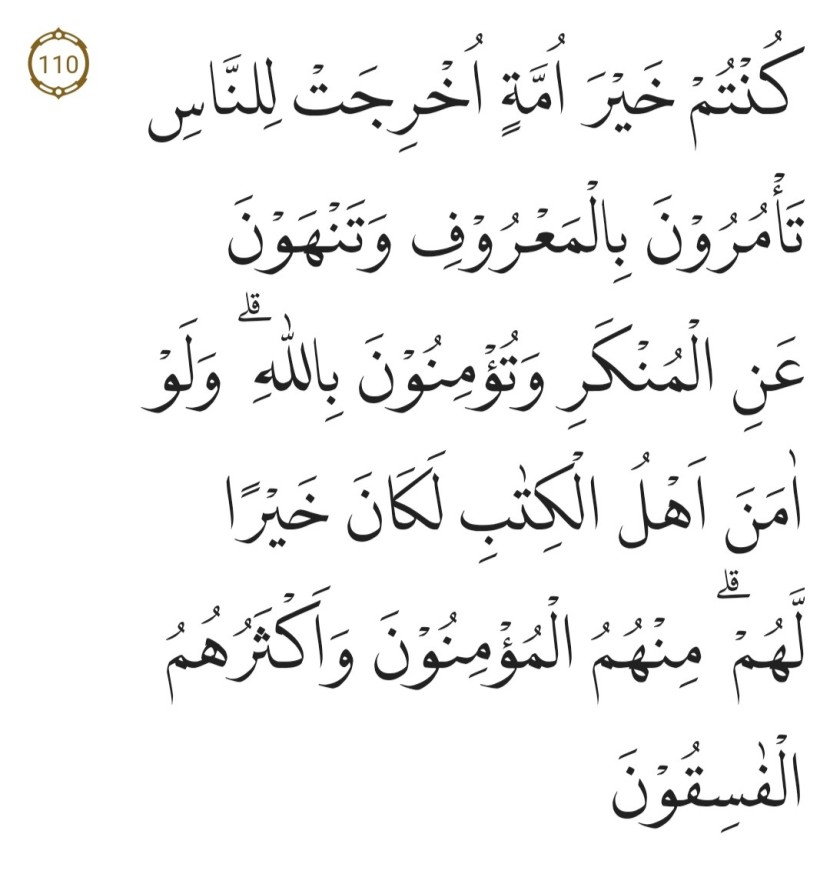 110
كُنْتُمْ خَيْرَ اُمَّةٍ اُخْرِجَتْ لِلنَّاسِ
تَأْمُرُوْنَ بِالْمَعْرُوْفِ وَتَنْهَوْنَ
عَنِ الْمُنْكَرِ وَتُؤْمِنُوْنَ بِاللّٰهِ ۗ وَلَوْ
اٰمَنَ اَهْلُ الْكِتٰبِ لَكَانَ خَيْرًا
لَّهُمْ ۗ مِنْهُمُ الْمُؤْمِنُوْنَ وَاَكْثَرُهُمُ
الْفٰسِقُوْنَ